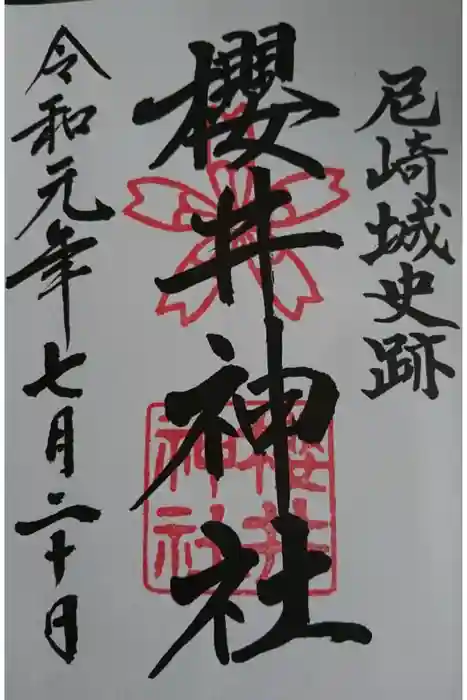 尼崎城史跡
櫻井神社
令和元年七月二十日
櫻井
神社